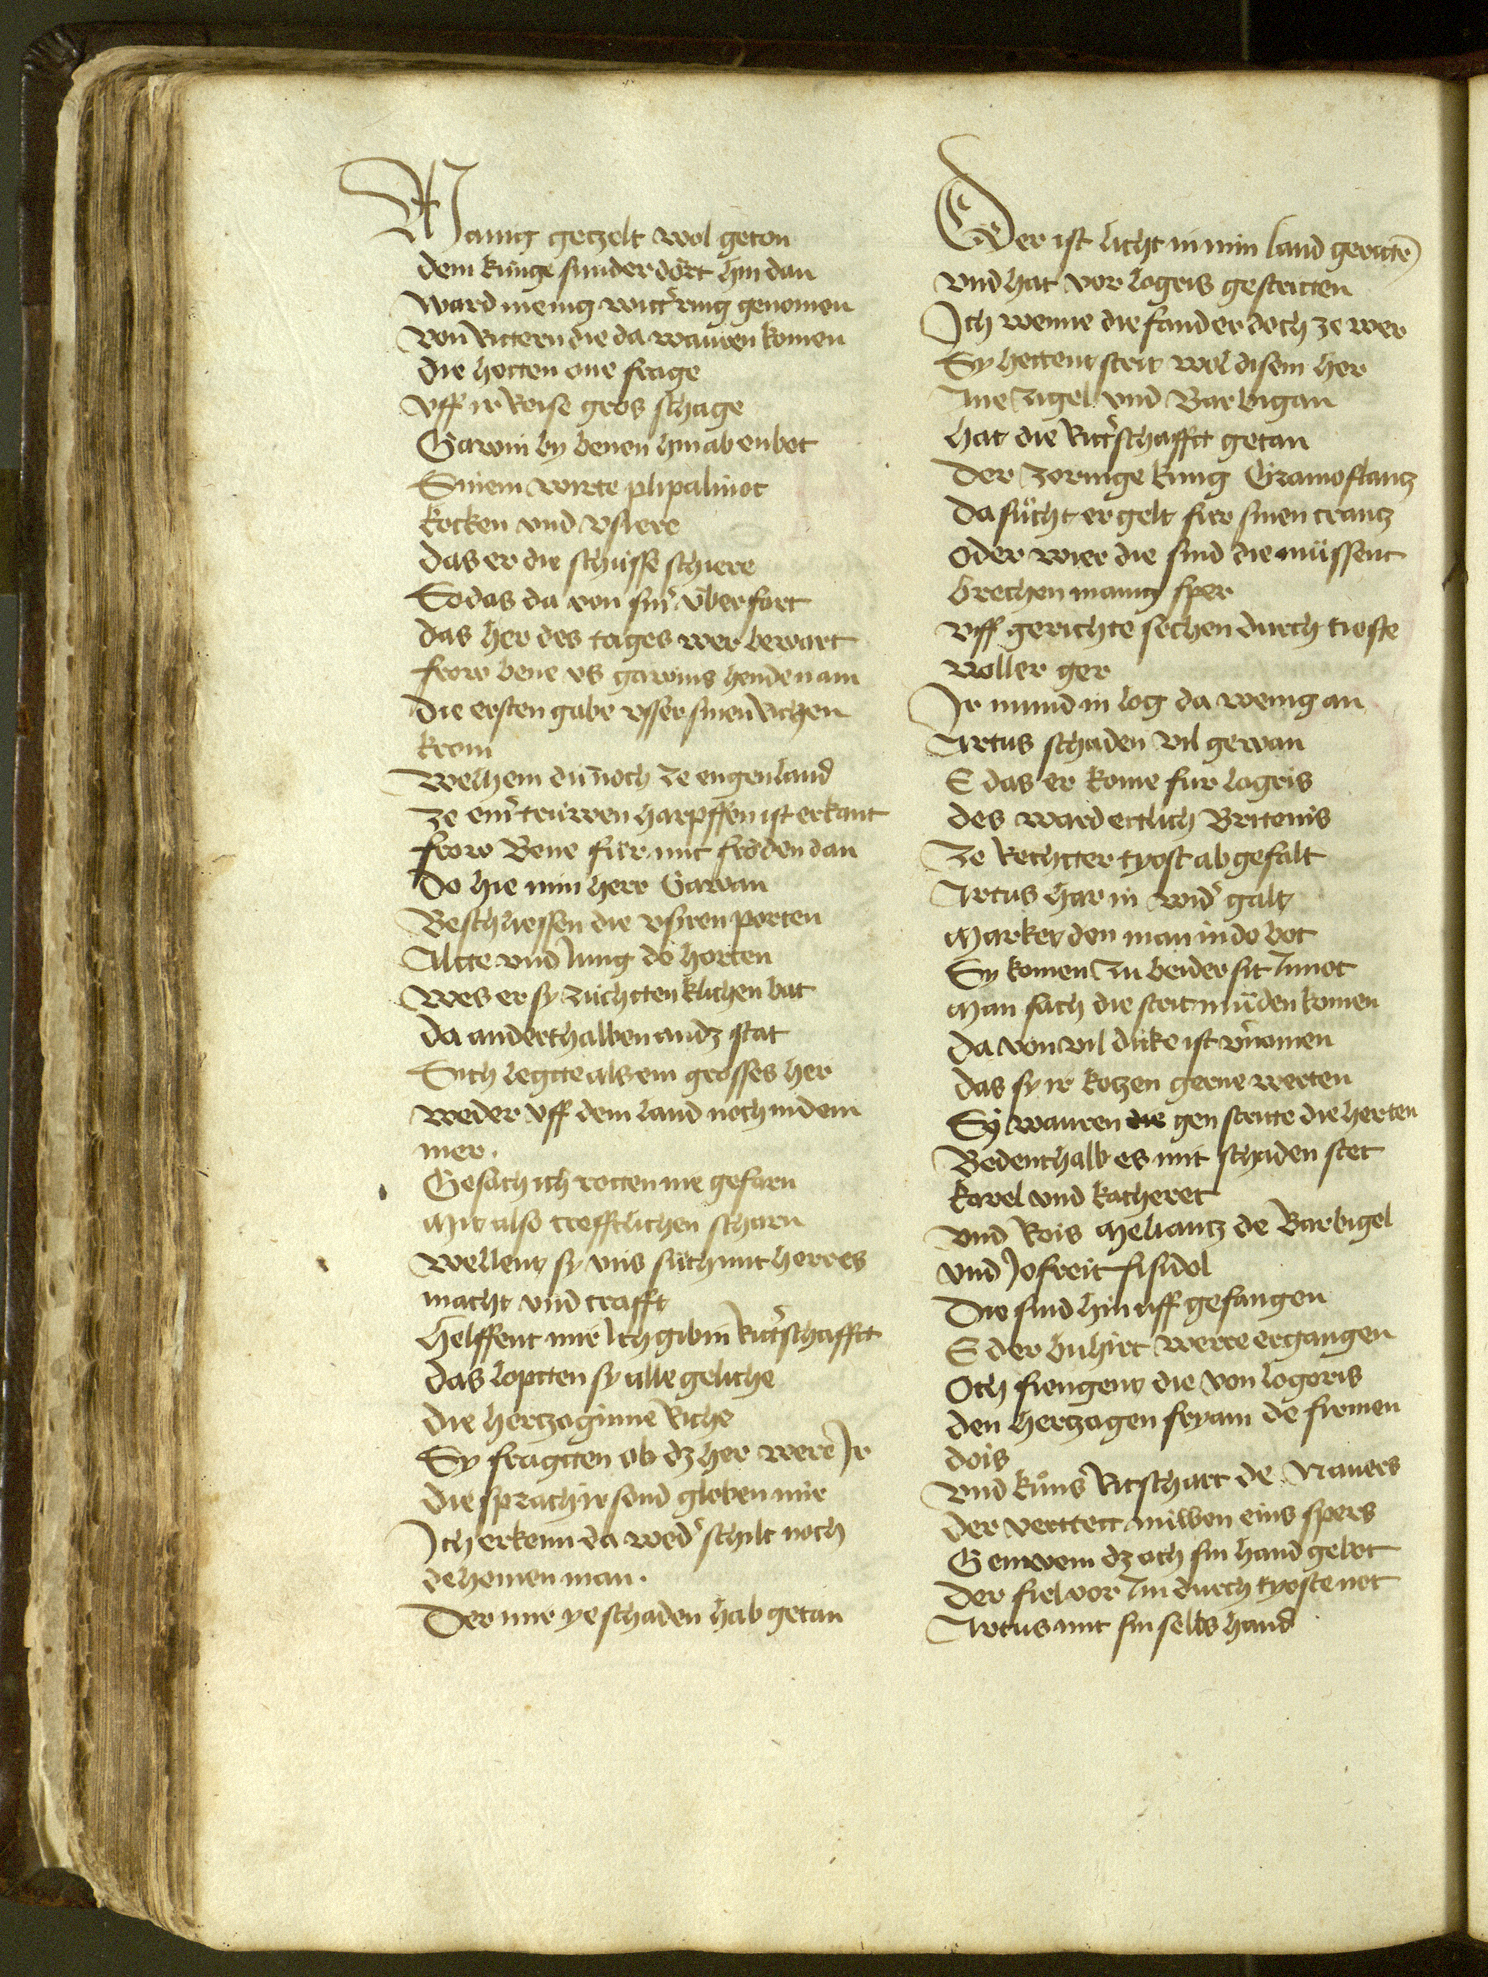 Manig gezelt wol geton
dem kunge sunder dört hin dan
ward menig witt'ring genomen
von Rittern die da wauren komen
die hetten one frage
vff ir Reise gros schage
Gawin by benen hin ab enbot
Sinem wirte plipalinot
kocken vnd vsiere
das er die schüsse schiere
So das da von sin' vberfart
das her des tages wer bewart
frow bene vs gawins henden am
die ersten gabe vsser sinen Richen
krom
Welhem dūnoch ze engenland
ze ein' trüwen harpffen ist erkant
frow Bene für mit fröden dan
Do hie min herr Gawan
Beschliessen die vsren porten
Altte vnd Jung do horten
Wes er sy züchttenklichen bat
da anderthalben andz stat
Sich legtte als ein grosses her
weder vff dem land noch in dem
mer.
Gesach ich rotten nie gefarn
Mit also trefftlichen scharn
Wellent sy vns such mit herres
macht vnd crafft
helffent mir Ich gib in Ritt'schafftt
das loptten sy alle geliche
die hertzoginne Riche
Sy fragtten ob dz her were Jr
die sprach ir sond globen mir
Ich erkenn da wed' schilt noch
dehomen man.
Der mir ye schaden hab getan
Der ist licht in min land gerittē
vnd hat vor logris gestritten
Ich wenne die fand er doch ze wer
Sy hettent strit wol disem her
Jne zigel vnd Barbigan
hat die Ritt'schafftt getan
der zornige kung Gramoflantz
da sücht er gelt für sinen crantz
oder wier die sind die müssent
brechen manig sper
vff gerichte sechen durch tioste
woller ger
Jr mund in log da wenig an
Artus schaden vil gewan
E das er kome fur logris
des ward ettlich Britenis
ze Rechtter tyost ab gefalt
Artus har in wid' galt
Market den man in do bot
Sy komen zu beider sit In not
Man sach die strit müden komen
da von vil dike ist v'nomen
das sy ir kotzen gerne werten
Sy wauren die gen stritte die herten
Bedenthalb es mit schaden stet
karel vnd katheret
vnd Rois Meliantz de Barbigel
vnd Jofreit fisidol
Die sind hin uff gefangen
E der buhirt werre ergangen
Och fiengent die von logoris
den hertzogen fryam de firmen
dois
vnd küns Ritschart de Navers
der verttett niwen eins spers
Gen wem dz och sin hand gebot
der fiel vor Im durch tyoste not
Artus mit sin selbs hand